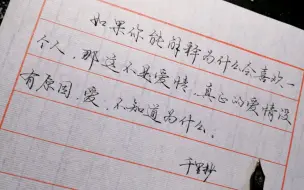 如果你能解释为什么会喜欢一
个人，那这不是爱情，真正的爱情没
有原因，爱，不知道为什么。